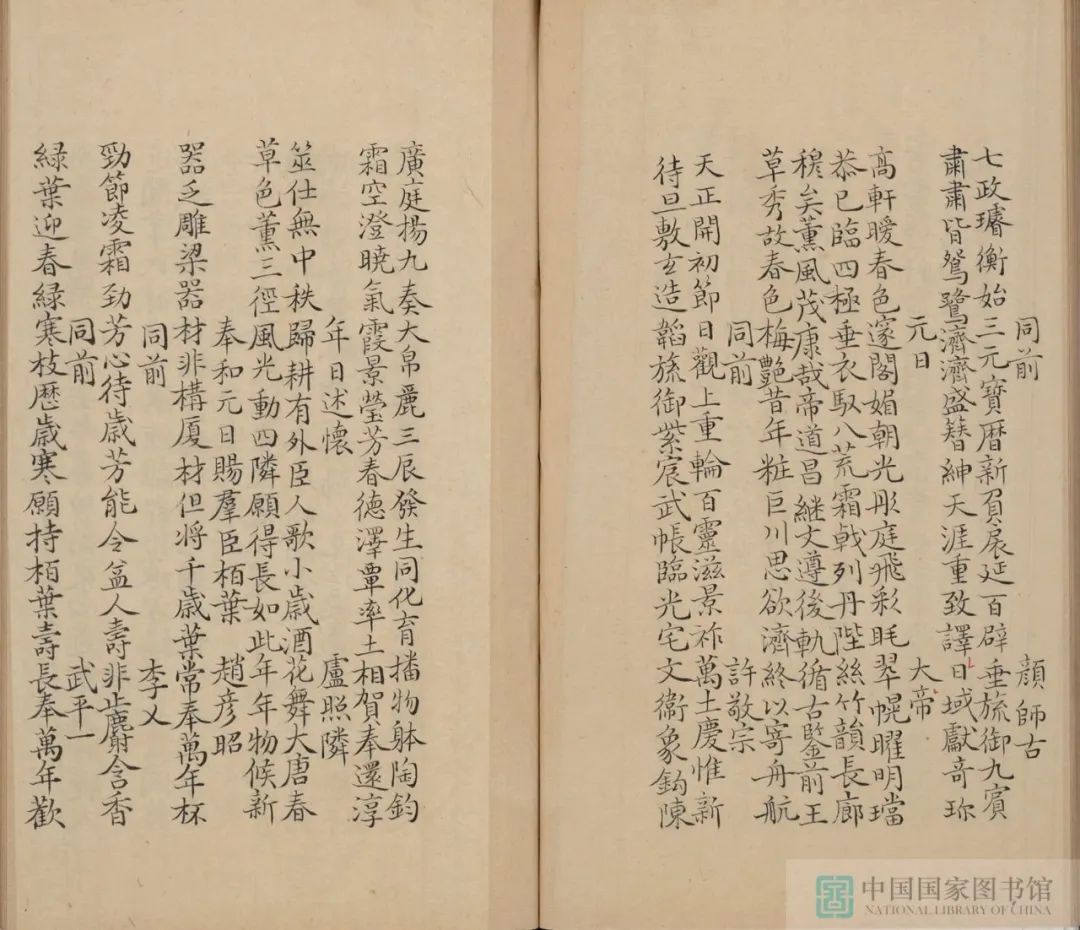 同前 顔師古
七政璿衡始三元寶曆新負扆延百辟垂旒御九賓
肅肅皆鴛鷺濟濟盛簪紳天涯重致譯日域獻奇珎
元日 大帝
高軒曖春色邃閣媚朝光彤庭飛彩眊翠幌曜明璫
恭已臨四極垂衣馭八荒霜戟列丹陛絲竹韻長廊
穆矣薰風茂康哉帝道昌継文遵後軌循古鑒前王
草秀故春色梅艷昔年粧巨川思欲濟終以寄舟航
同前 許敬宗
天正開初節日觀上重輪百靈滋景祚萬土慶惟新
待旦敷玄造韜旒御紫宸武帳臨光宅文衞象鈎陳
廣庭揚九奏大帛麗三辰發生同化育播物躰陶鈞
霜空澄曉氣霞景瑩芳春德澤覃率土相賀奉還淳
年日述懷 盧照隣
筮仕無中秩歸耕有外臣人歌小歲酒花舞大唐春
草色薰三徑風光動四隣願得長如此年年物候新
奉和元日賜羣臣栢葉 趙彦昭
器乏雕梁器材非構厦材但将千歲葉常奉萬年杯
同前 李乂
勁節凌霜劲芳心待歲芳能令益人壽非止麝含香
同前 武平一
緑葉迎春緑寒枝歷歲寒願持栢葉壽長奉萬年歡
中国国家图书馆
NATIONAL LIBRARY OF CHINA